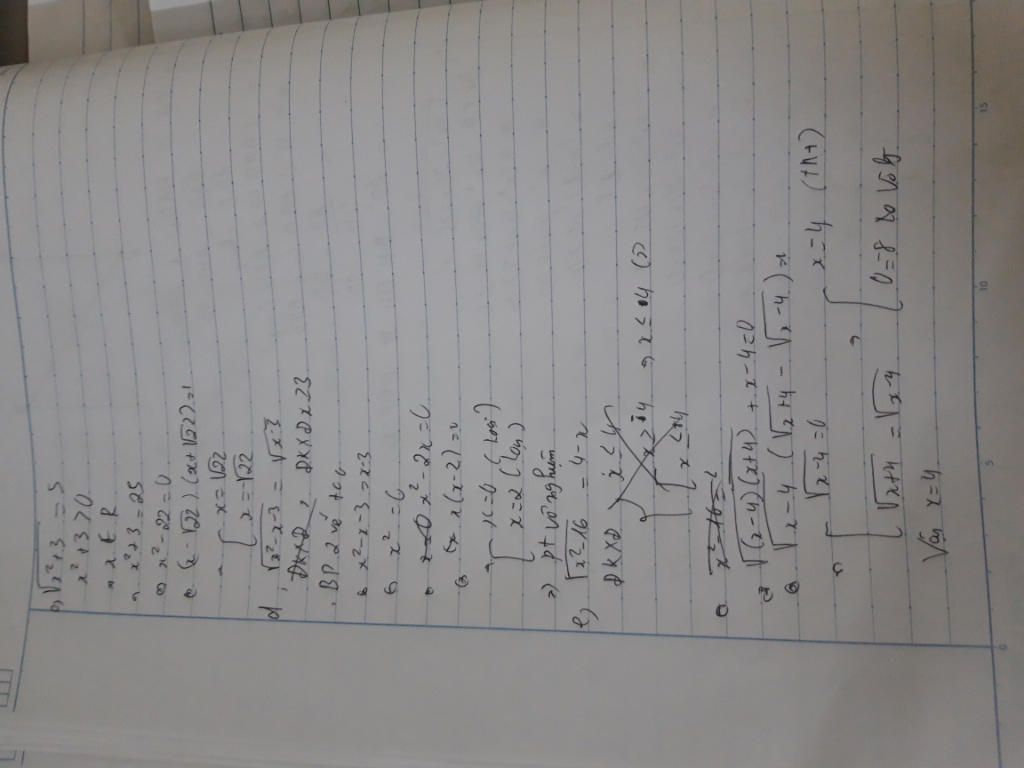 c, √(x²+3) = 5
x²+3 > 0
⇒ x ∈ R
⇒ x²+3 = 25
⇔ x²-22 = 0
⇔ (x-√22)(x+√22) =
[ x = √22
x = √22
d, √(x²-x-3) = √(x-3)
ĐKXĐ x≥3
BP 2 vế ta có
⇔ x²-x-3 = x-3
⇔ x² = 6
⇔ x²-2x = 0
⇔ x(x-2) = 0
[ x=0 (loại)
x=2 (loại)
⇒ pt vô nghiệm
e, √(x²-16) = 4-x
ĐKXĐ x ≤ 4
x ≤ -4
⇔ √((x-4)(x+4)) + x-4=0
⇔ √(x-4) (√(x+4) - √(x-4)) =
⇔ [ √(x-4) = 0
√(x+4) = √(x-4)
⇒ [ x=4 (TM)
0=-8 vô lý
Vậy x=4
5 10 15